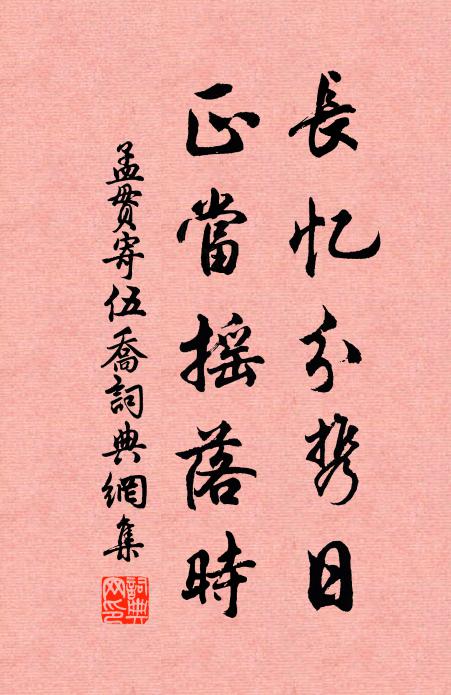 長忆分携日
正當摇落時
孟贯寄伍喬詞典網集
詞典網印